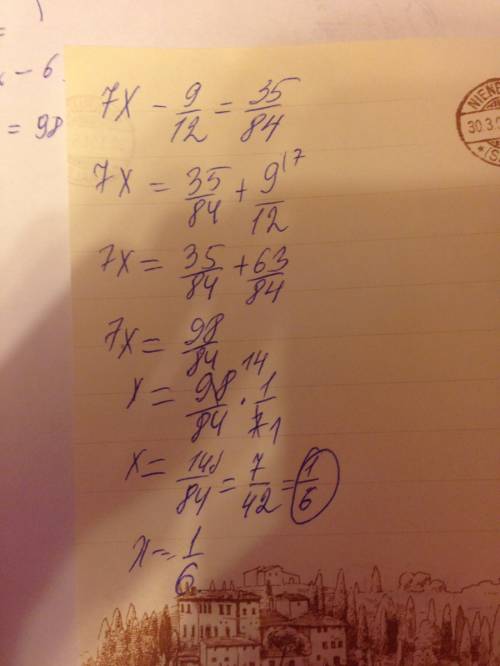 - 6
= 98
7x - 9/12 = 35/84
7x = 35/84 + 9^(7/12
7x = 35/84 + 63/84
7x = 98/84
x = 98^14/84 · 1/7 1
x = 14/84 = 7/42 = 1/6
x = 1/6
NIENB
30.3.
(S